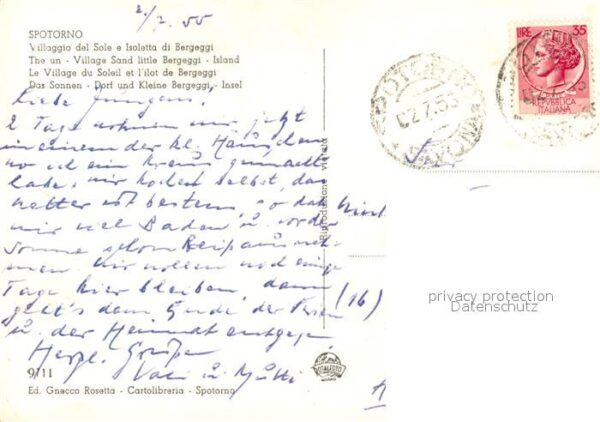 2/7. 55
SPOTORNO
Villaggio del Sole e Isoletta di Bergeggi
The un - Village Sand little Bergeggi - Island
Le Village du Soleil et l'ilot de Bergeggi
Das Sonnen - Dorf und Kleine Bergeggi - Insel
Liebe Jungens!
2 Tage wohnen wir jetzt
in einem der kl. Häuschen
wo ich ein Kreuz gemacht
habe, wir kochen selbst, das
Wetter ist bestens, so daß
wir viel Baden u. von der
Sonne
wir wollen noch einige
Tage hier bleiben, dann
geht's dem Ende der Ferien
u. der Heimat entgegen
Herzl. Grüße
Vati u. Mutti
(16)
9/11
Ed. Gnecco Rosetta - Cartolibreria - Spotorno
Riproduzione vietata
ITALFOTO
SPOTORNO
02.7.55
SAVONA
LIRE 35
REPUBBLICA
ITALIANA
privacy protection
Datenschutz